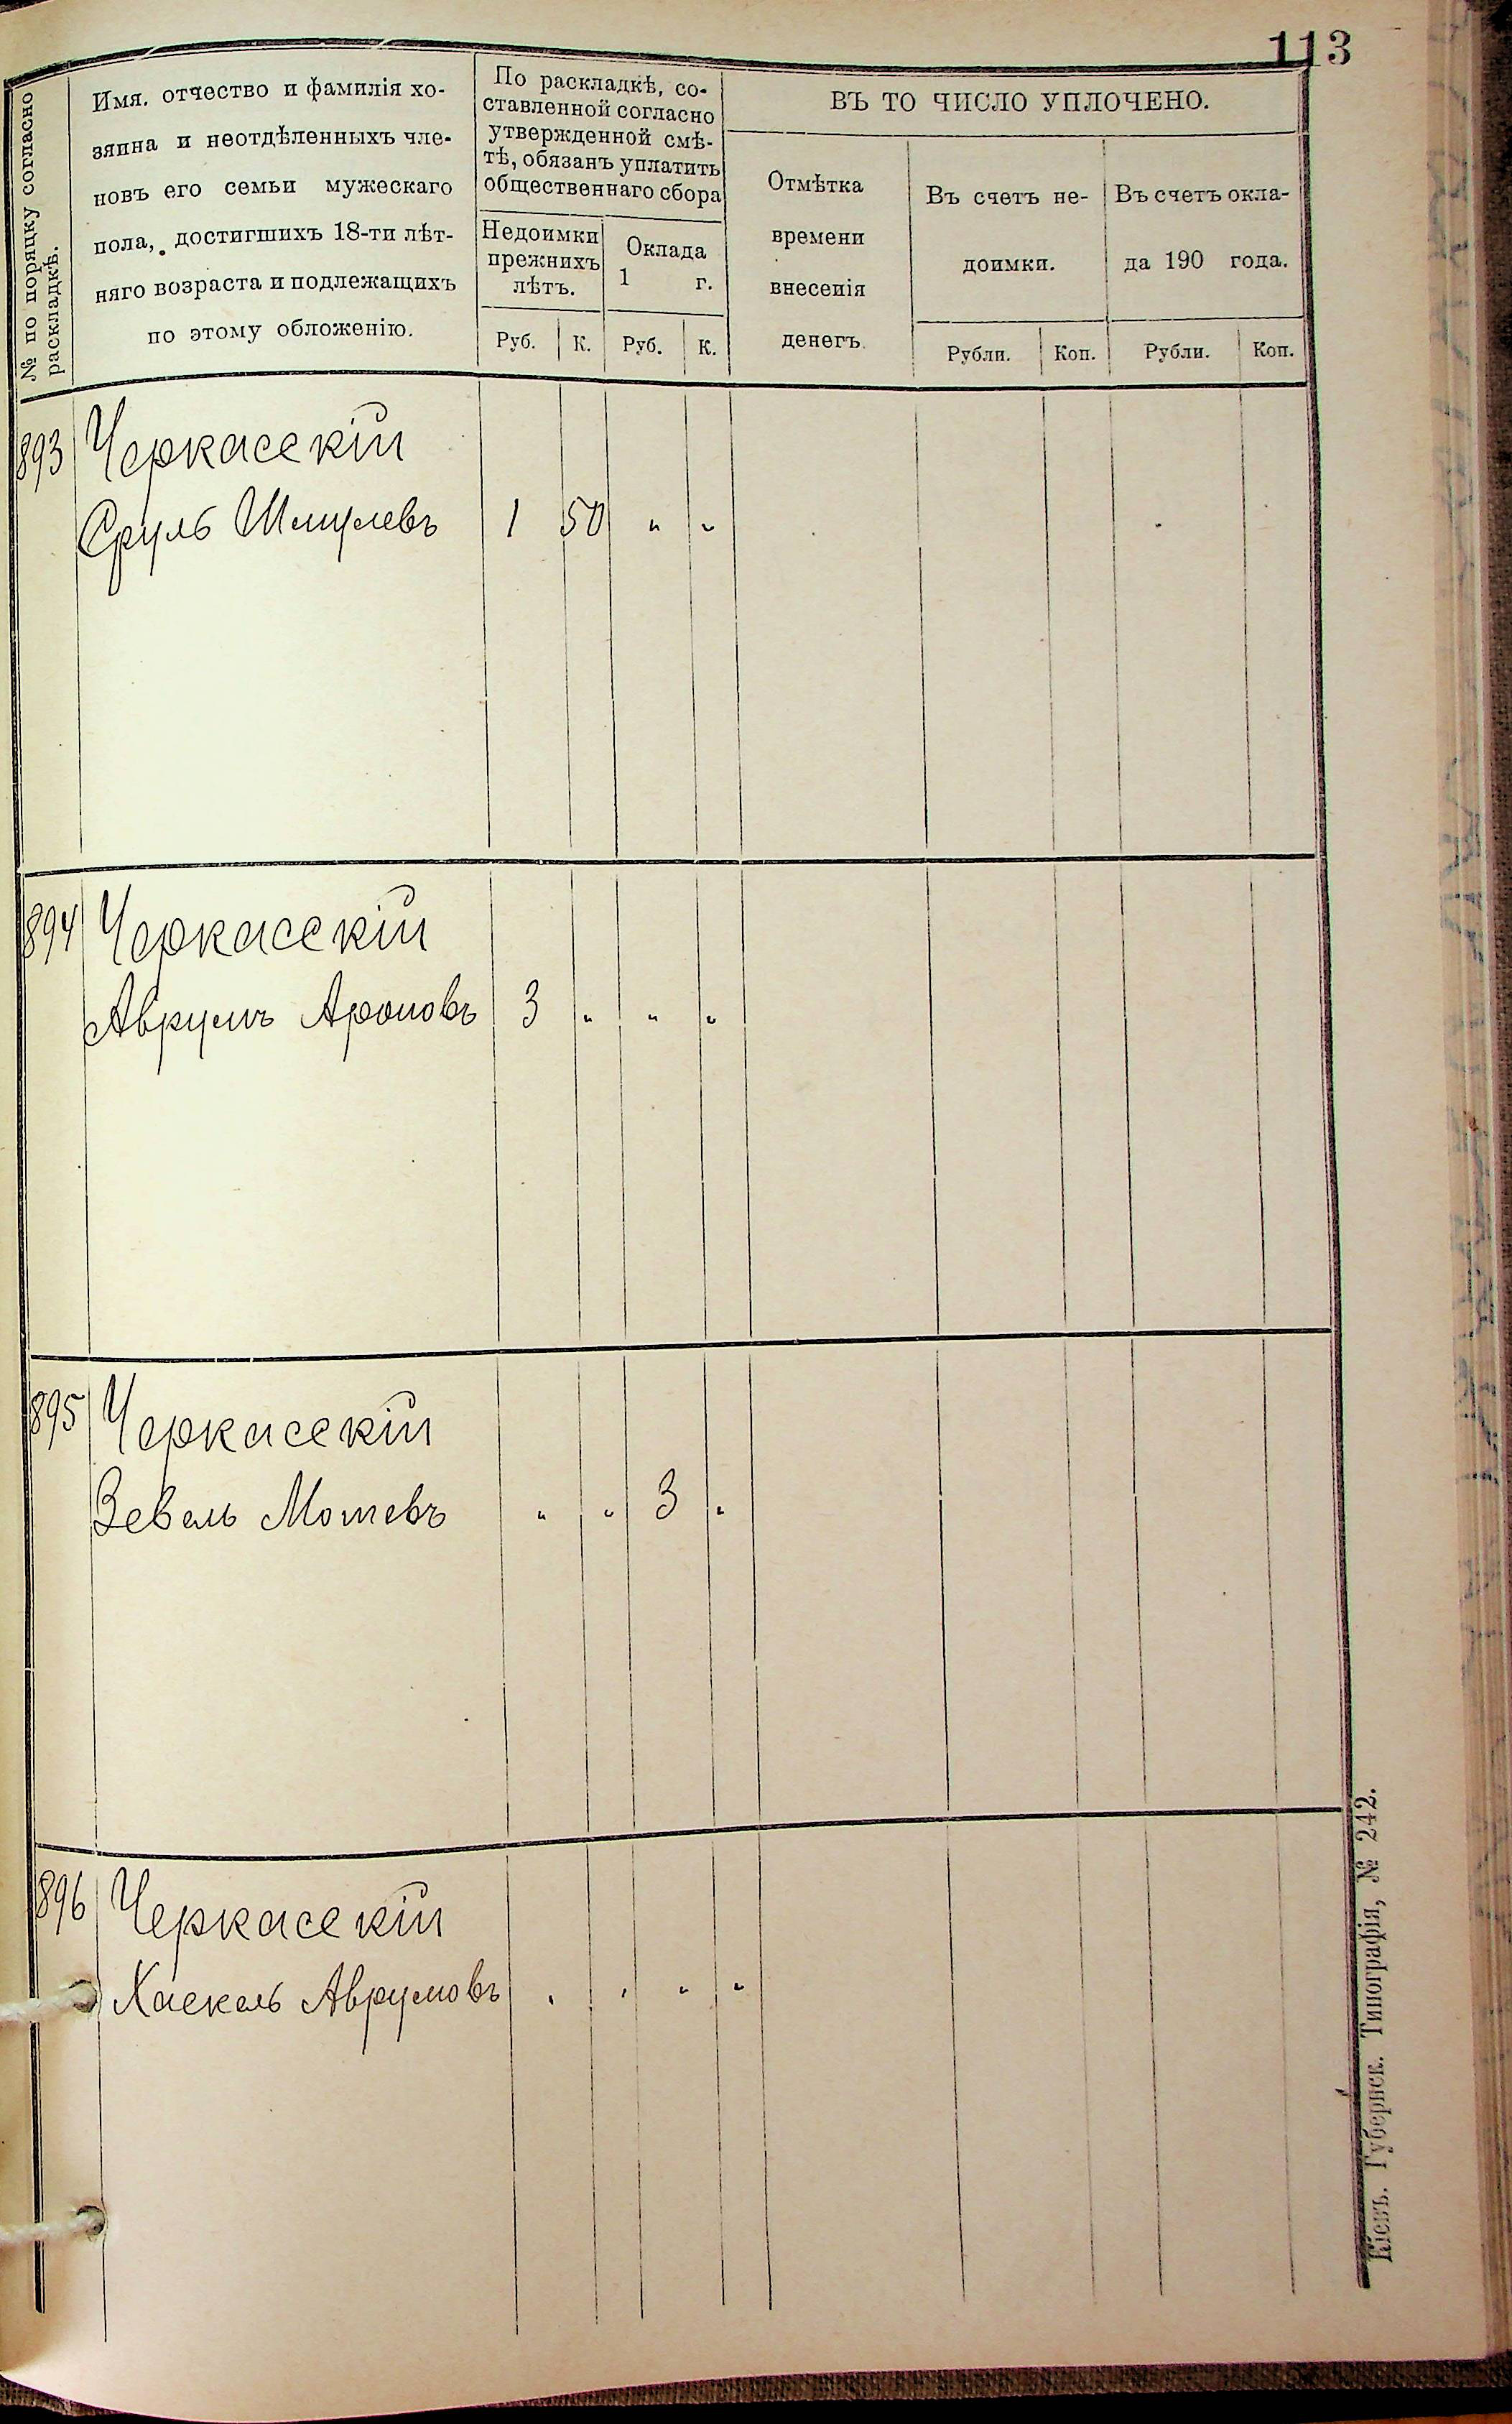 113
№ по поряцку согласно
раскладкѣ.
Имя. отчество и фамилія хо-
зяина и неотдѣленныхъ чле-
новъ его семьи мужескаго
пола, достигшихъ 18-ти лѣт-
няго возраста и подлежащихъ
по этому обложенію.
По раскладкѣ, со-
ставленной согласно
утвержденной смѣ-
тѣ, обязанъ уплатить
общественнаго сбора
Недоимки
прежнихъ
лѣтъ.
Руб. К.
Оклада
1 г.
Руб. К.
ВЪ ТО ЧИСЛО УПЛОЧЕНО.
Отмѣтка
времени
внесенія
денегъ.
Въ счетъ не-
доимки.
Рубли. Коп.
Въ счетъ окла-
да 190 года.
Рубли. Коп.
893 Черкасскій
Сруль Шмулевъ 1 50 " "
894 Черкасскій
Аврумъ Ароновъ 3 " " "
895 Черкасскій
Зевель Мошевъ " " 3 "
896 Черкасскій
Хаскель Аврумовъ " " " "
Кіевъ. Губернск. Типографія, № 242.